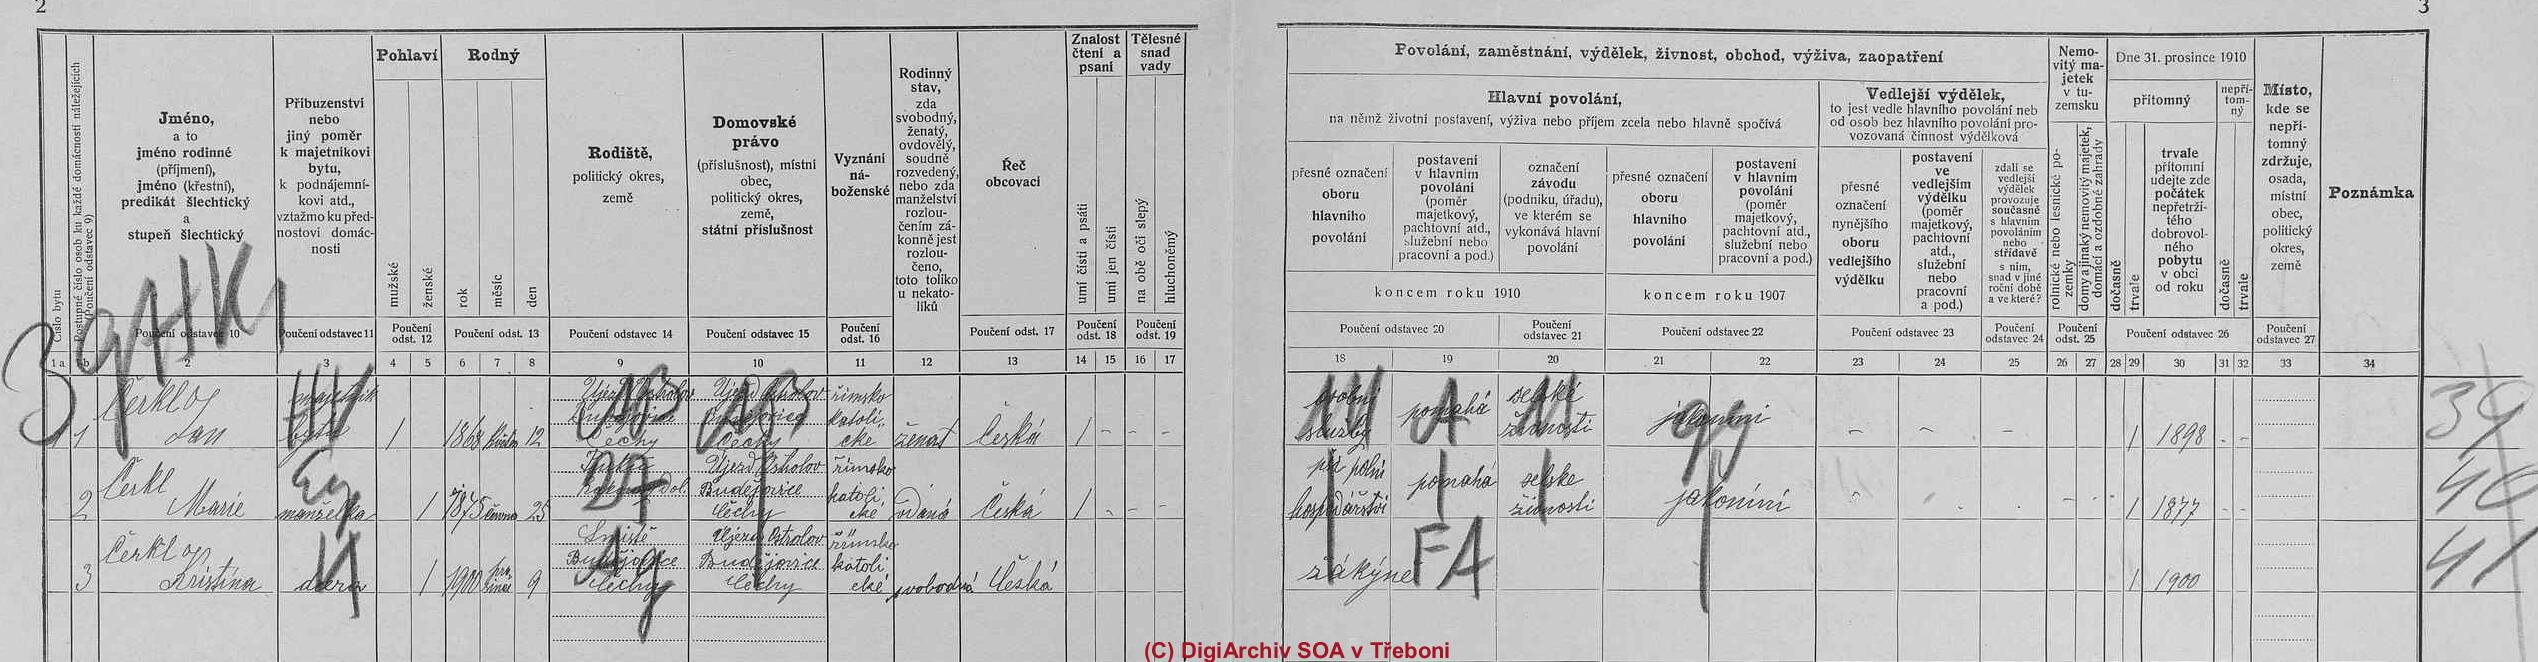 2
3
Číslo bytu
Postupné číslo osob ku každé domácnosti náležejících
(Poučení odstavec 9)
Jméno,
a to
jméno rodinné
(příjmení),
jméno (křestní),
predikát šlechtický
a
stupeň šlechtický
Poučení odstavec 10
Příbuzenství
nebo
jiný poměr
k majetníkovi
bytu,
k podnájemní-
kovi atd.,
vztažmo ku před-
nostovi domác-
nosti
Poučení odstavec 11
Pohlaví
mužské
ženské
Poučení
odst. 12
Rodný
rok
měsíc
den
Poučení odst. 13
Rodiště,
politický okres,
země
Poučení odstavec 14
Domovské
právo
(příslušnost), místní
obec,
politický okres,
země,
státní příslušnost
Poučení odstavec 15
Vyznání
ná-
boženské
Poučení
odst. 16
Rodinný
stav,
zda
svobodný,
ženatý,
ovdovělý,
soudně
rozvedený,
nebo zda
manželství
rozlou-
čením zá-
konně jest
rozlou-
čeno,
toto toliko
u nekato-
líků
Řeč
obcovací
Poučení odst. 17
Znalost
čtení a
psaní
umí čísti a psáti
umí jen čísti
Poučení
odst. 18
Tělesné
snad
vady
na obě oči slepý
hluchoněmý
Poučení
odst. 19
1a 1b 2 3 4 5 6 7 8 9 10 11 12 13 14 15 16 17
Povolání, zaměstnání, výdělek, živnost, obchod, výživa, zaopatření
Hlavní povolání,
na němž životní postavení, výživa nebo příjem zcela nebo hlavně spočívá
přesné označení
oboru
hlavního
povolání
postavení
v hlavním
povolání
(poměr
majetkový,
pachtovní atd.,
služební nebo
pracovní a pod.)
označení
závodu
(podniku, úřadu),
ve kterém se
vykonává hlavní
povolání
koncem roku 1910
přesné označení
oboru
hlavního
povolání
postavení
v hlavním
povolání
(poměr
majetkový,
pachtovní atd.,
služební nebo
pracovní a pod.)
koncem roku 1907
Poučení odstavec 20
Poučení
odstavec 21
Poučení odstavec 22
Vedlejší výdělek,
to jest vedle hlavního povolání neb
od osob bez hlavního povolání pro-
vozovaná činnost výdělková
přesné
označení
nynějšího
oboru
vedlejšího
výdělku
postavení
ve
vedlejším
výdělku
(poměr
majetkový,
pachtovní
atd.,
služební
nebo
pracovní
a pod.)
zdali se
vedlejší
výdělek
provozuje
současně
s hlavním
povoláním
nebo
střídavě
s ním,
snad v jiné
roční době
a ve které?
Poučení odstavec 23
Poučení
odstavec 24
Nemo-
vitý ma-
jetek
v tu-
zemsku
rolnické nebo lesnické po-
zemky
domy a jinaký nemovitý majetek,
domácí a ozdobné zahrady
Poučení
odst. 25
Dne 31. prosince 1910
přítomný
nepří-
tom-
ný
dočasně
trvale
trvale
přítomní
udejte zde
počátek
nepřetrži-
tého
dobrovol-
ného
pobytu
v obci
od roku
dočasně
trvale
Poučení odstavec 26
Místo,
kde se
nepří-
tomný
zdržuje,
osada,
místní
obec,
politický
okres,
země
Poučení
odstavec 27
Poznámka
18 19 20 21 22 23 24 25 26 27 28 29 30 31 32 33 34
1 1 Jan bytu 1 1868 12 Čechy Újezd Ostrolov Budějovice Čechy římsko katoli, cké ženat Česká 1 – – –
osobní služby pomáhá selské živnosti jakonini – – – 1 1898 - - 39
2 Čerkl Marie manželka 1 1875 června 25 Újezd Ostrolov Budějovice Čechy římsko katoli, cké vdaná Česká 1 - – –
při polní hospodářství pomáhá selské živnosti jakonini 1 1877 - - 40
3 Kristina dcera 1 1900 pro sinec 9 Budějovice Čechy Újezd Ostrolov Budějovice Čechy římsko katoli cké svobodná Česká
žákyně FA 1 1900 41
(C) DigiArchiv SOA v Třeboni